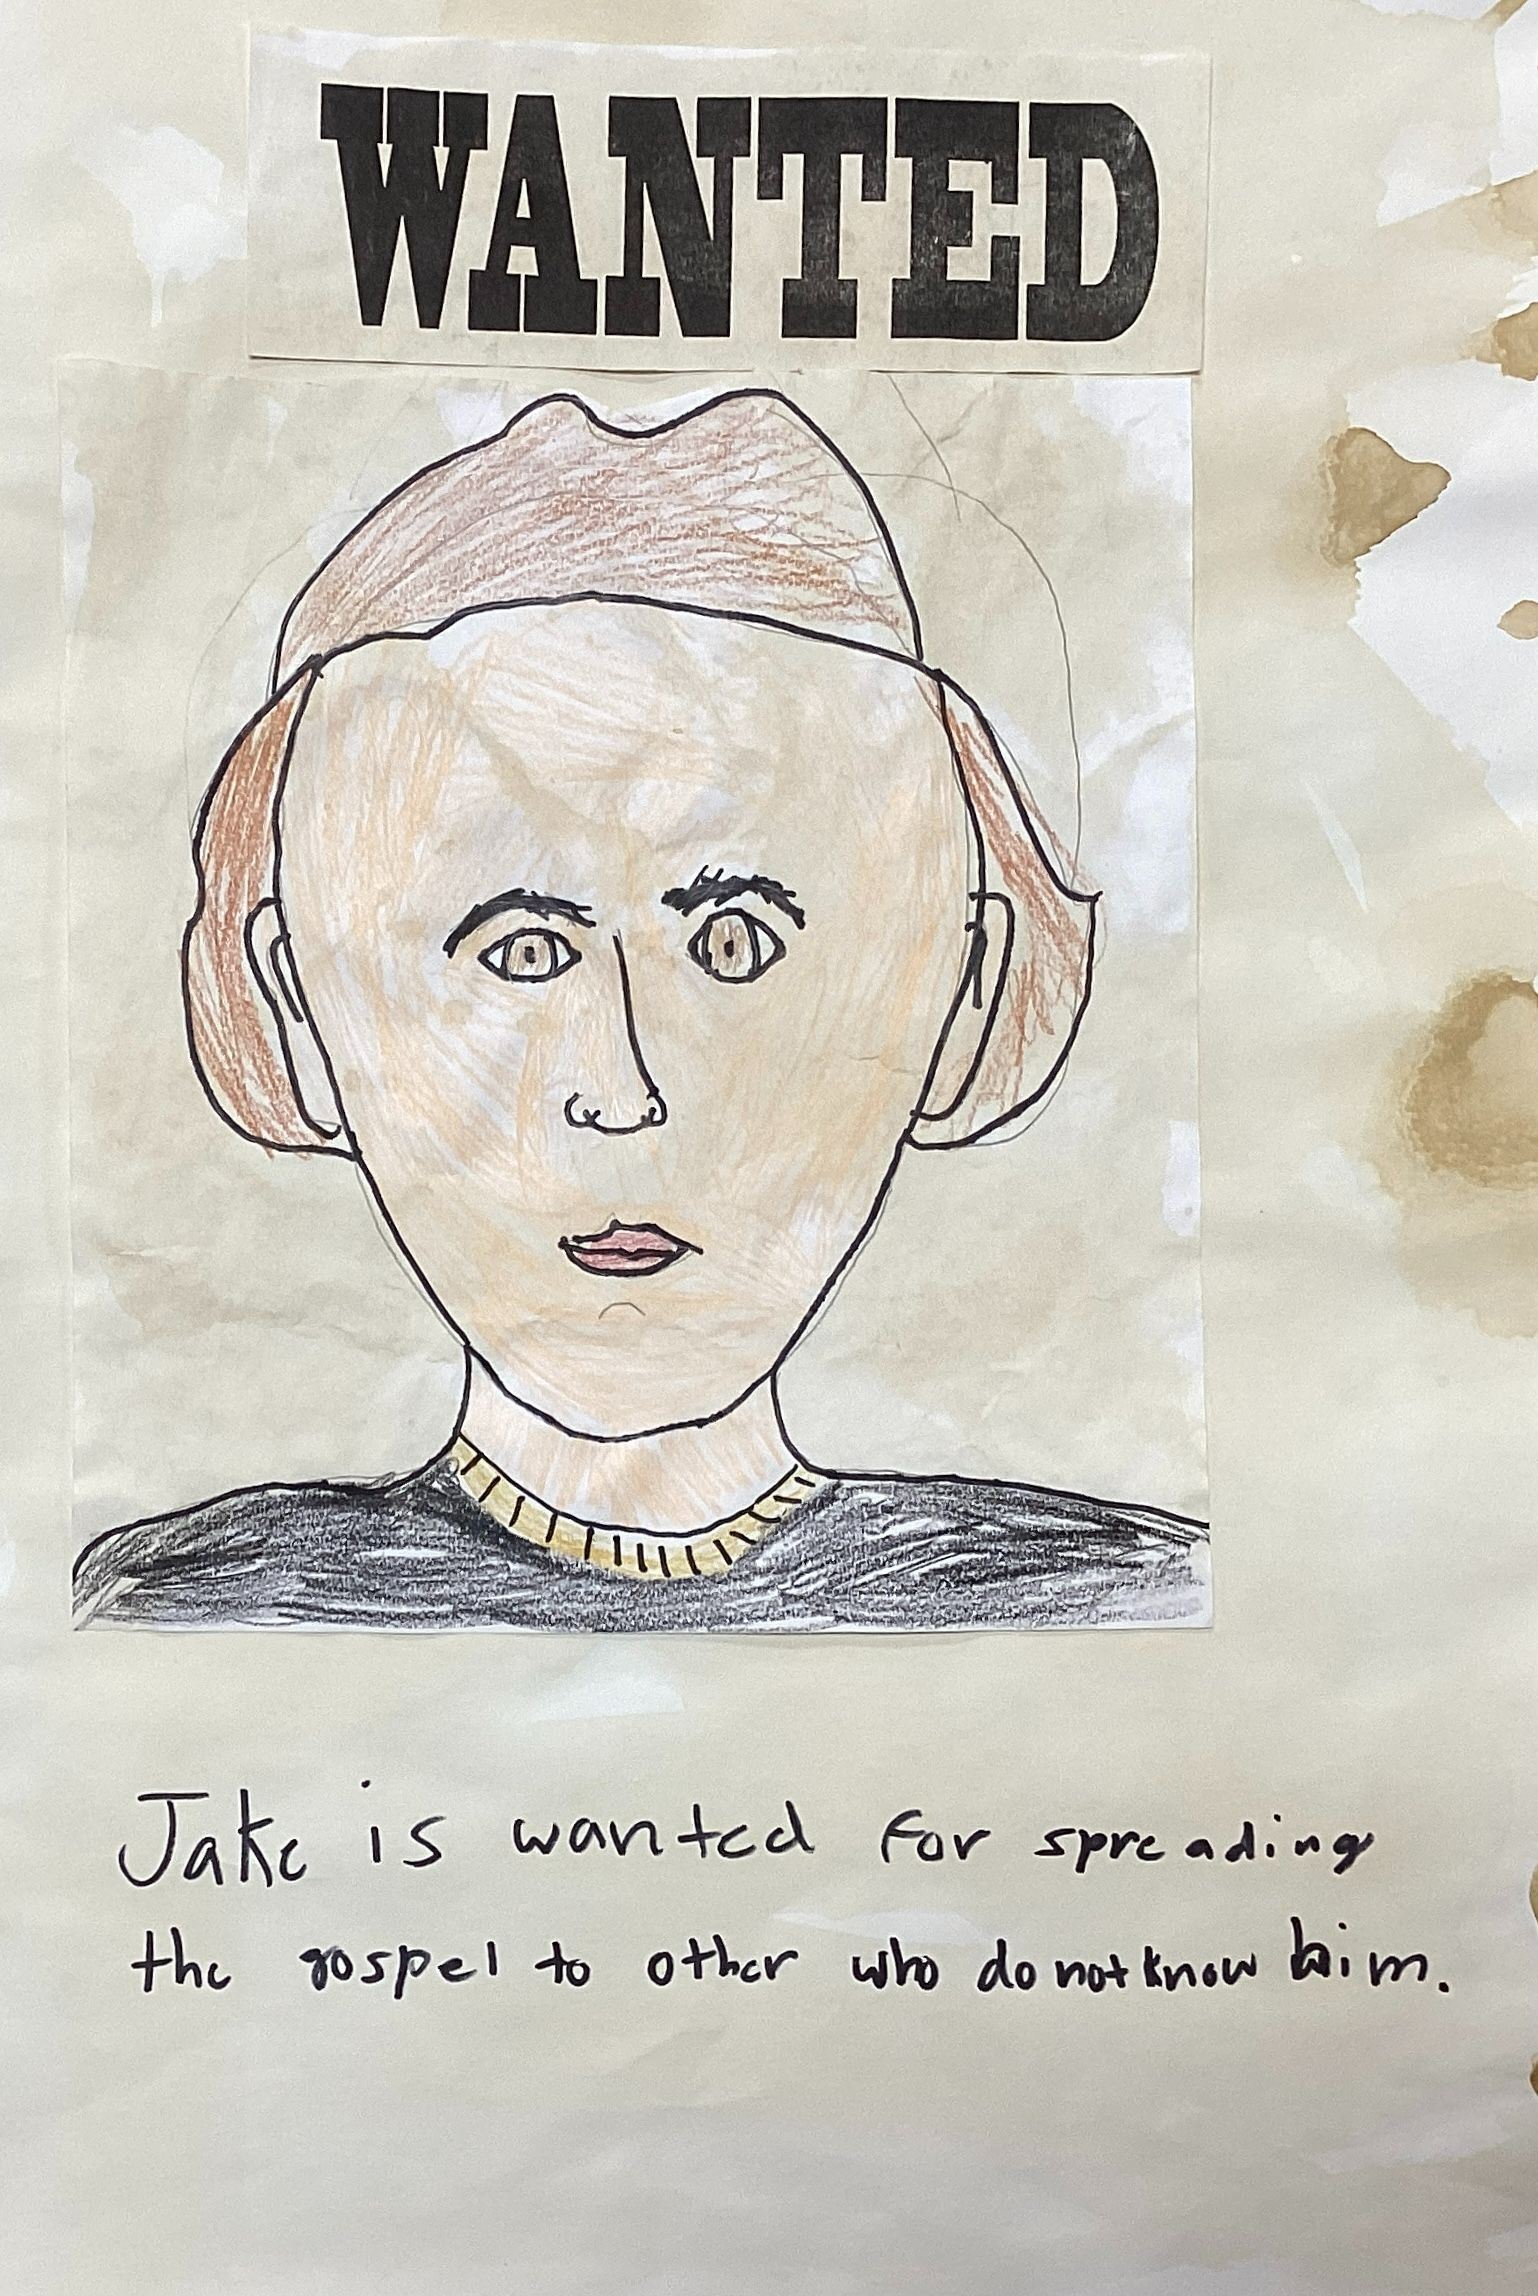 WANTED
Jake is wanted for spreading
the gospel to other who do not know him.